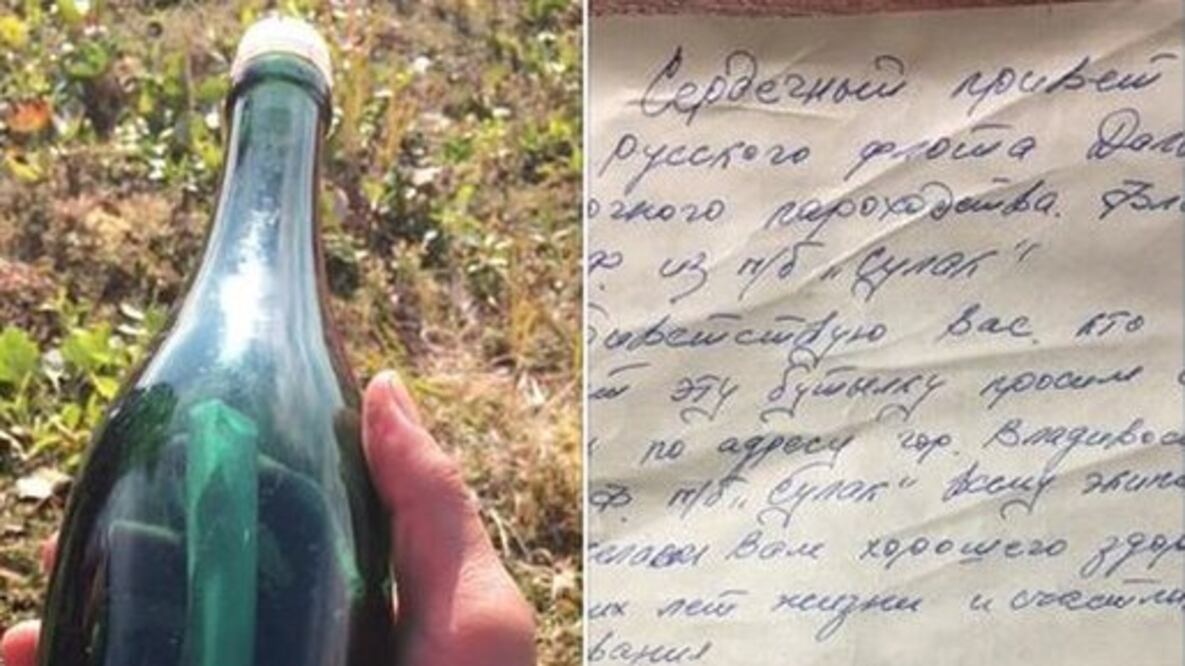 Сердечный привет
русского флота Даль
очного пароходства. Вла
ф. из т/б „Сулак“
иветствую Вас кто
ит эту бутылку просим
по адресу гор. Владивос
ф. т/б „Сулак“ всему экипа
елаем Вам хорошего здор
их лет жизни и счастли
вания